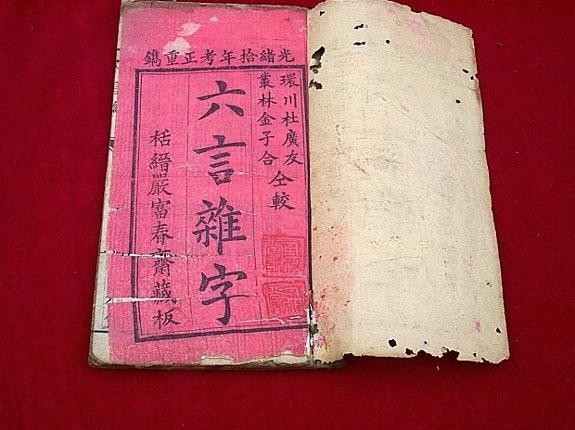 光緒拾年考正重鐫
環川杜廣友
叢林金子合
仝較
六言雜字
栝縉嚴富春齋藏板